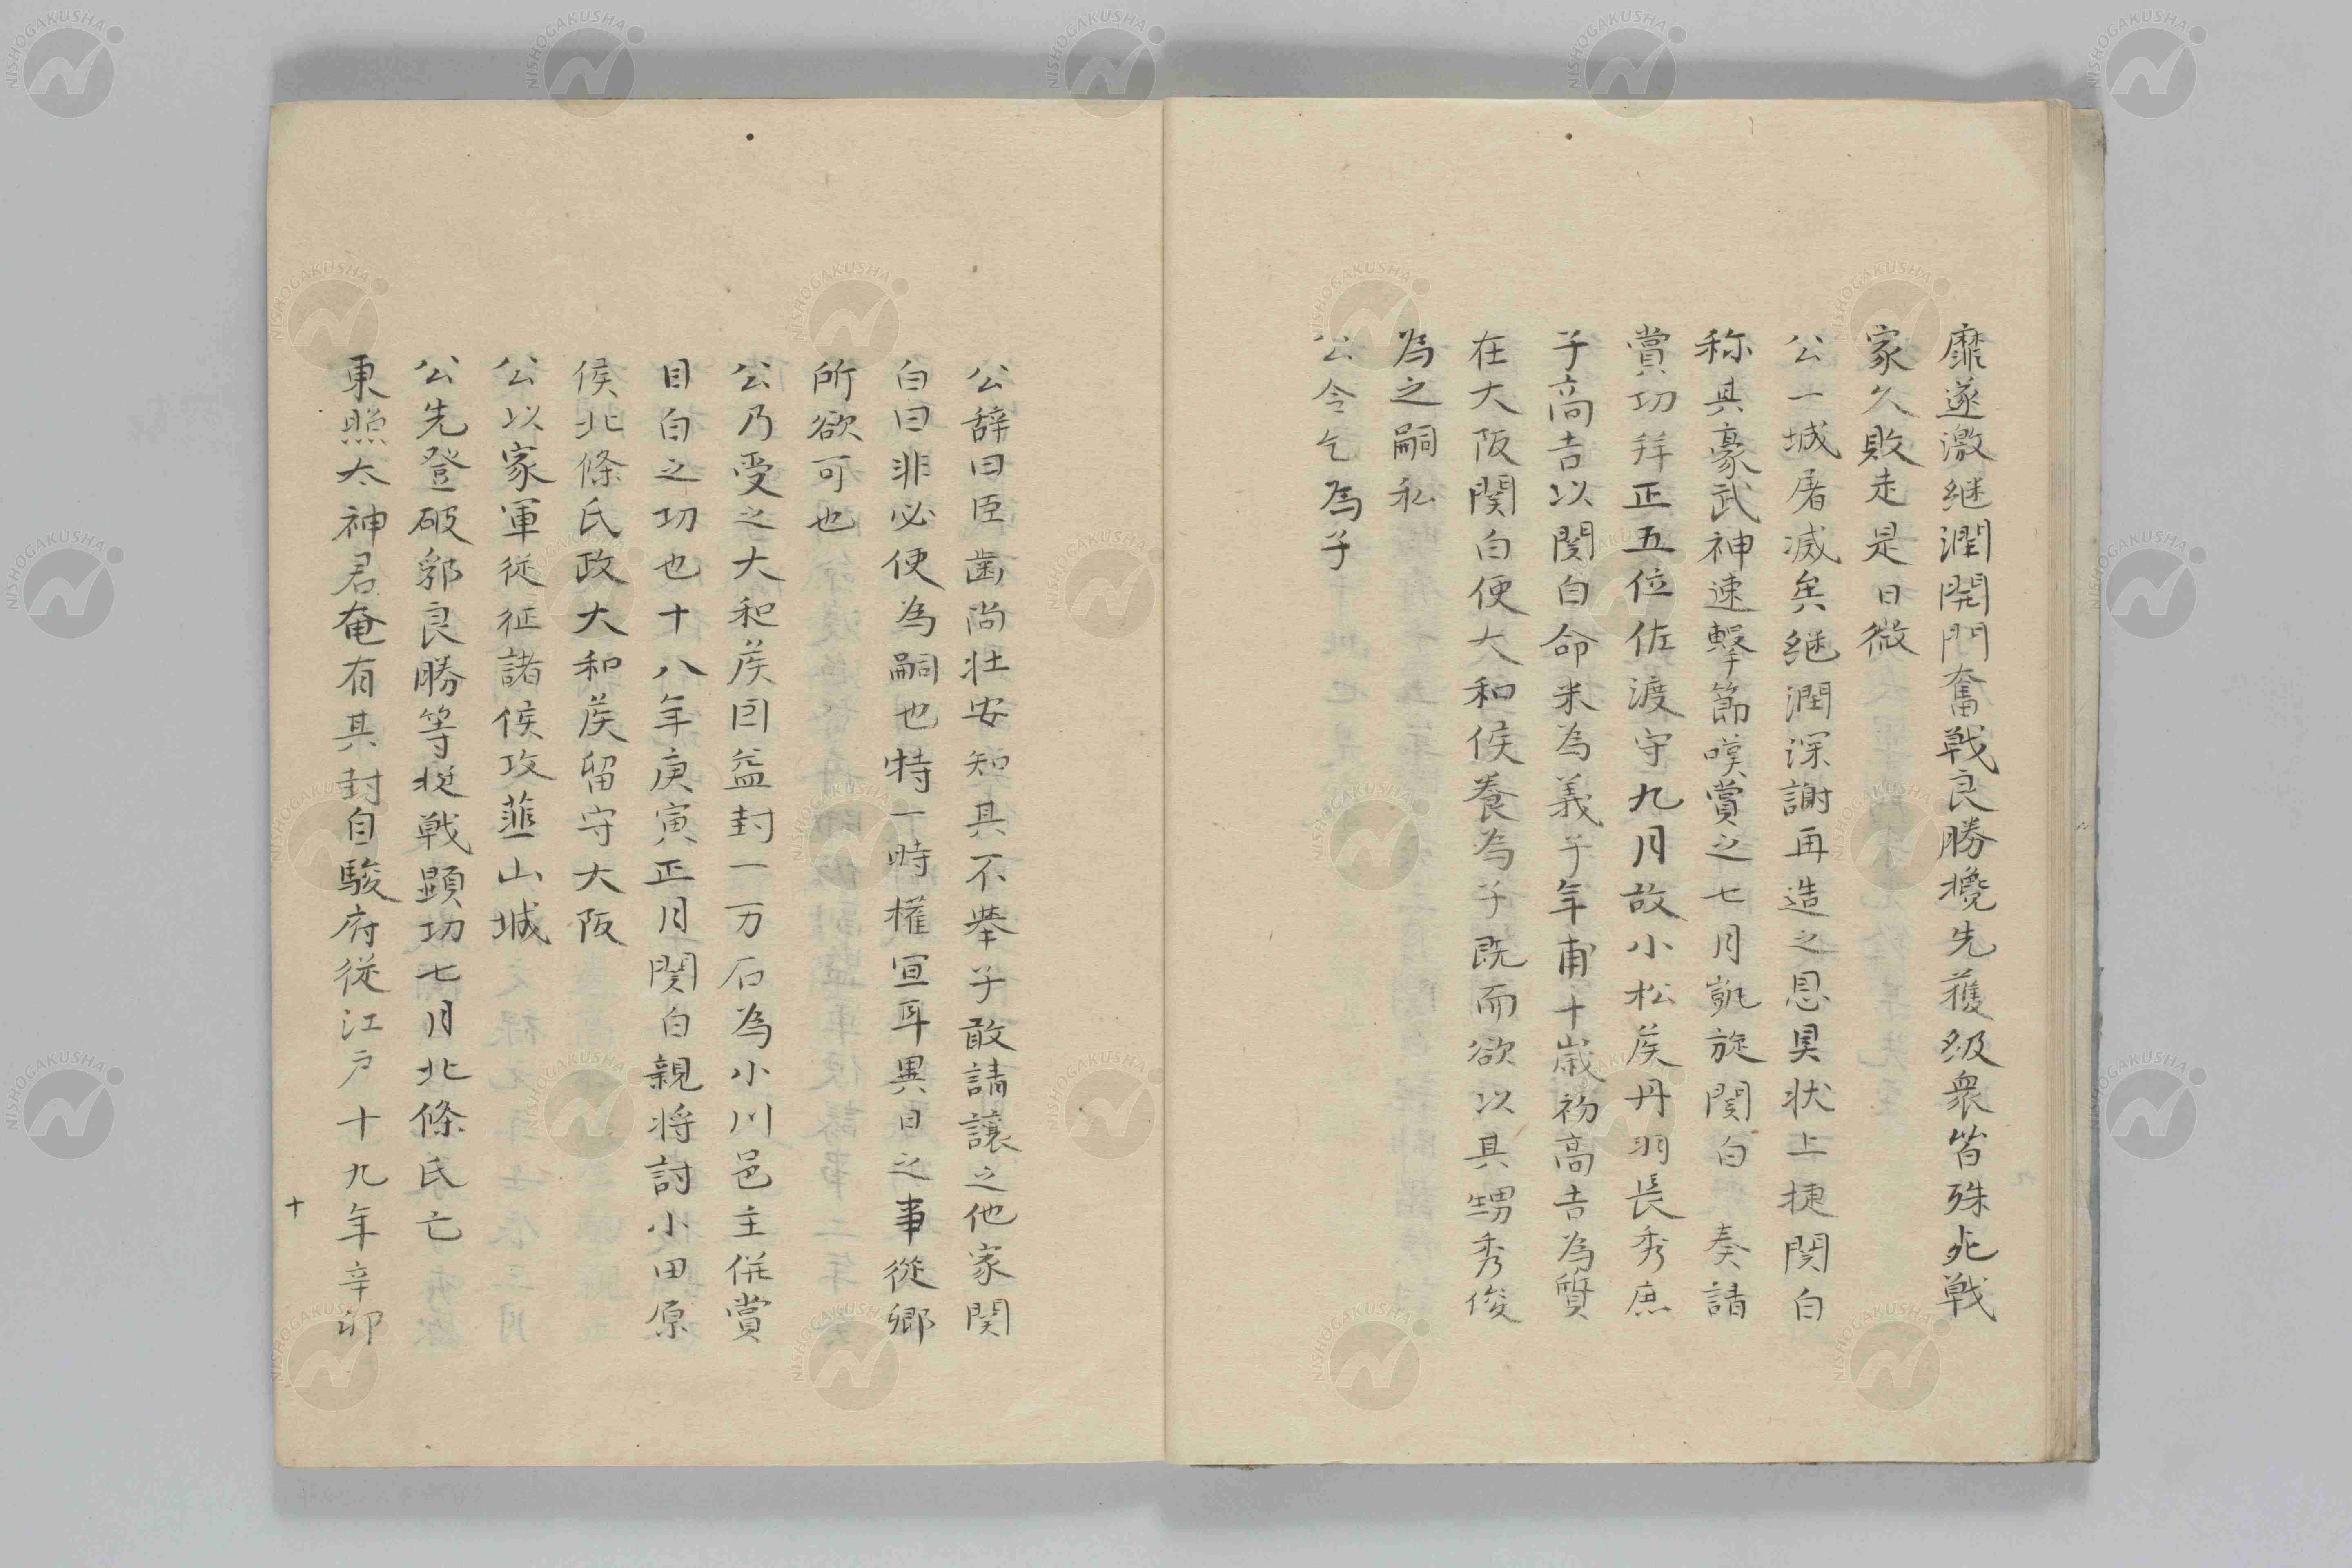 靡遂激継潤開門奮戦良勝攙先獲級衆皆殊死戦
家久敗走是日微
公一城屠滅矣継潤深謝再造之恩具状上捷関白
称其豪武神速撃節嘆賞之七月凱旋関白 奏請
賞功拜正五位佐渡守九月故小松侯丹羽長秀庶
子高吉以関白命来為義子年甫十歳初高吉為質
在大阪関白便大和侯養為子既而欲以其甥秀俊
為之嗣私
公令乞為子
公辞曰臣歯尚壮安知其不挙子敢請譲之他家関
白曰非必便為嗣也特一時權宜耳異日之事從郷
所欲可也
公乃受之大和侯因益封一万石為小川邑主併賞
目白之功也十八年庚寅正月関白親将討小田原
侯北條氏政大和侯留守大阪
公以家軍従征諸侯攻韮山城
公先登破郭良勝等挺戦顕功七月北條氏亡
東照大神君奄有其封自駿府従江戸十九年辛卯
十
NISHOGAKUSHA